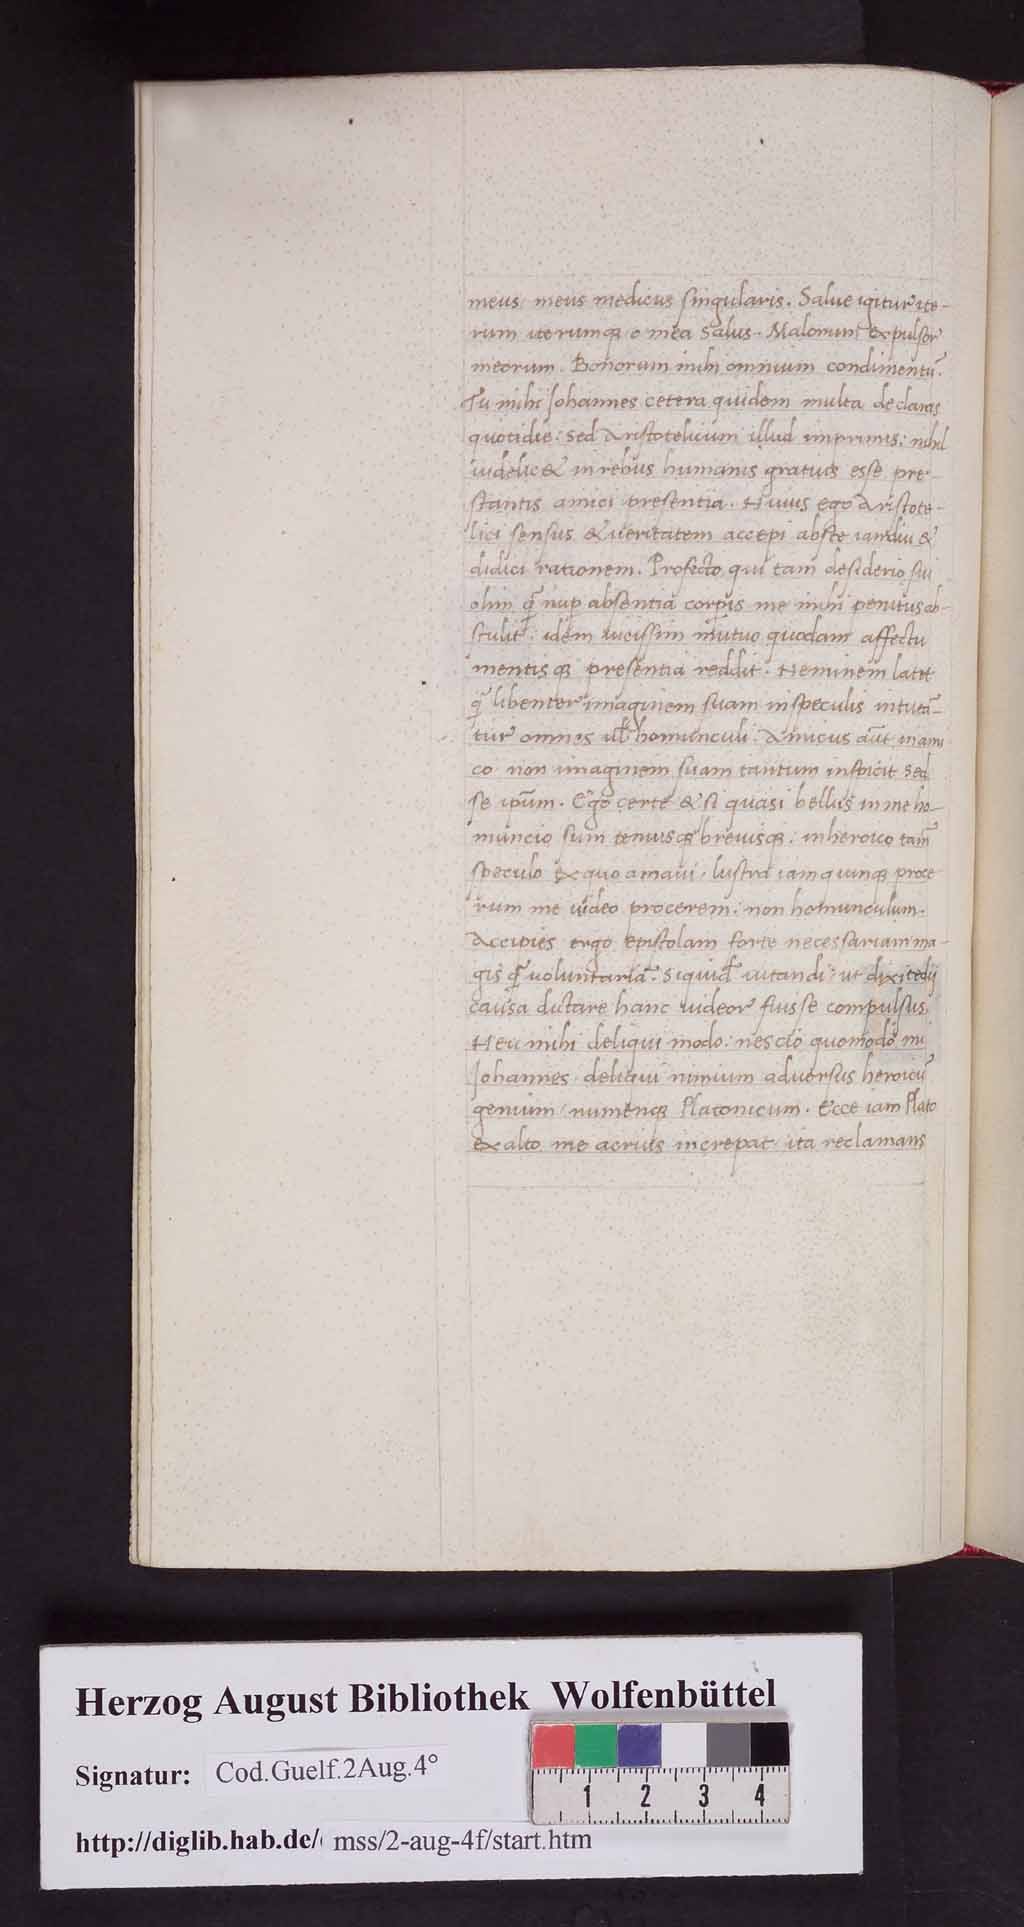 meus, meus medicus singularis. Salue igitur ite-
rum iterumq; o mea Salus. Malorum expulsor
meorum. Bonorum mihi omnium condimentū.
Tu mihi Iohannes cetera quidem multa declaras
quotidie: sed Aristotelicum illud imprimis: nihil
uidelic& in rebus humanis gratius esse pre-
stantis amici presentia. Huius ego Aristote-
lici sensus & ueritatem accepi abste iamdiu &
didici rationem. Profecto qui tam desiderio sui
olim q̄ nup absentia corpis me mihi penitus ab-
stulit: idem uicissim mutuo quodam affectu
mentisq; presentia reddit. Neminem latet
q̄ libenter imaginem suam in speculis intueā-
tur omnes ul̄ homunculi. Amicus aūt in ami
co non imaginem suam tantum inspicit sed
se ipsum. Ego certe & si quasi bellus in me ho-
muncio sum tenuisq; breuisq;: in heroico tam̄
speculo ex quo amaui, lustra iam quinq; proce
rum me uideo procerem: non homunculum.
Accipies ergo epistolam forte necessariam ma-
gis q̄ uoluntariā. Siquid̄ uitandi: ut dixi tedij
causa dictare hanc uideor fuisse compulsus.
Heu mihi deliqui modo: nescio quomodo mi
Iohannes deliqui nimium aduersus heroicū
genium, numenq; Platonicum. Ecce iam Plato
ex alto me acrius increpat ita reclamans
Herzog August Bibliothek Wolfenbüttel
Signatur: Cod.Guelf.2Aug.4°
1 2 3 4
http://diglib.hab.de/ mss/2-aug-4f/start.htm